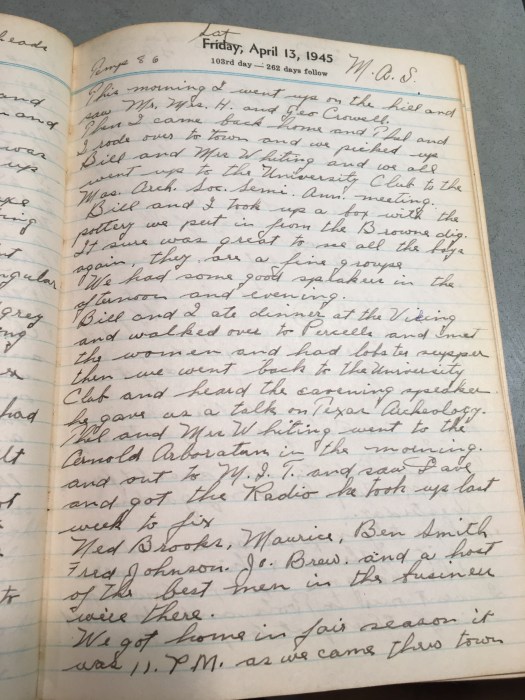 Sat
Friday, April 13, 1945
103rd day — 262 days follow
M. A. S.
Temp 86
This morning I went up on the hill and
saw Mr. Mrs. H. and Geo Crowell.
Then I came back home and Phil and
I rode over to town and we picked up
Bill and Mrs Whiting and we all
went up to the University Club to the
Mas. Arch. Soc. Semi. Ann. meeting.
Bill and I took up a box with the
pottery we put in from the Browne dig.
It sure was great to see all the boys
again, they are a fine groupe.
We had some good speakers in the
afternoon and evening.
Bill and I ate dinner at the Viking
and walked over to Purcells and met
the women and had lobster supper
then we went back to the University
Club and heard the evening speaker.
he gave us a talk on Texas Archeology.
Phil and Mrs Whiting went to the
Arnold Arboratum in the morning.
and out to M. I. T. and saw Dave
and got the Radio he took up last
week to fix
Ned Brooks, Maurice, Ben Smith
Fred Johnson. Jo. Brew. and a host
of the best men in the business
were there.
We got home in fair season it
was 11. P.M. as we came thru town
heads
and
and
was
up
ring
ngular
grey
had
to